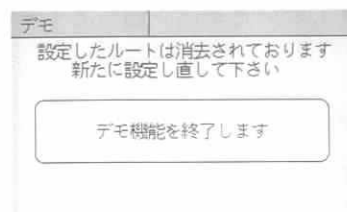 デモ
設定したルートは消去されております
新たに設定し直して下さい
デモ機能を終了します